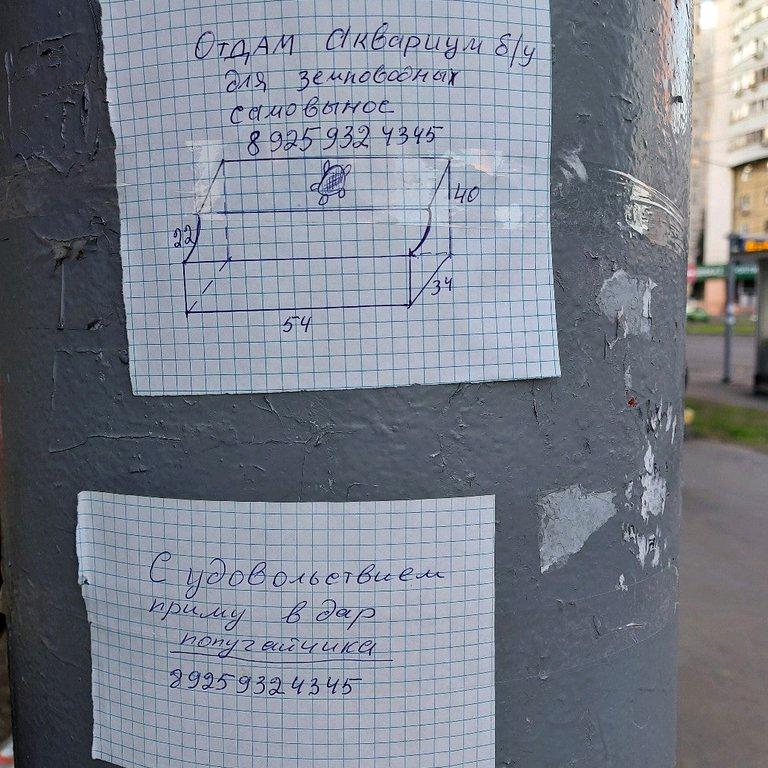 ОтДАМ Аквариум б/у
для земноводных
самовынос
8 925 932 4345
40
22
34
54
С удовольствием
приму в дар
попугайчика
89259324345